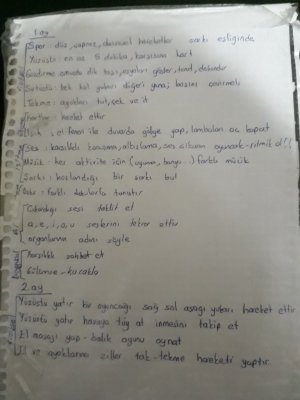 1.ay
Spor: düz, çapraz, dairesel hareketler şarkı eşliğinde
Yüzüstü: en az 5 dakika, karşısına kart
Gezdirme, omuda dik tası, eşyaları göster,
Sırtüstü: tek kol yukarı diğeri
Tekme: ayakları tut, çek ve it
hareket ettir
Işık, el feneri ile duvarda gölge yap, lambaları aç kapat
Ses: karşılıklı konuşma, alkışlama, ses çıkaran oyuncak-ritmik ol!!
Müzik: her aktivite için (uyuma, banyo..) farklı müzik
Şarkı: hoşlandığı bir şarkı bul
farklı dokularla tanıştır
Çıkardığı sesi taklit et
a, e, i, o, u seslerini tekrar ettir
organlarının adını söyle
Karşılıklı sohbet et
Gülümse-kucakla
2.ay
Yüzüstü yatır bir oyuncağı sağ sol aşağı yukarı hareket ettir
Yüzüstü yatır havaya tüy at inmesini takip et
El masajı yap-balık oyunu oynat
El ve ayaklarına ziller tak-tekme hareketi yaptır.